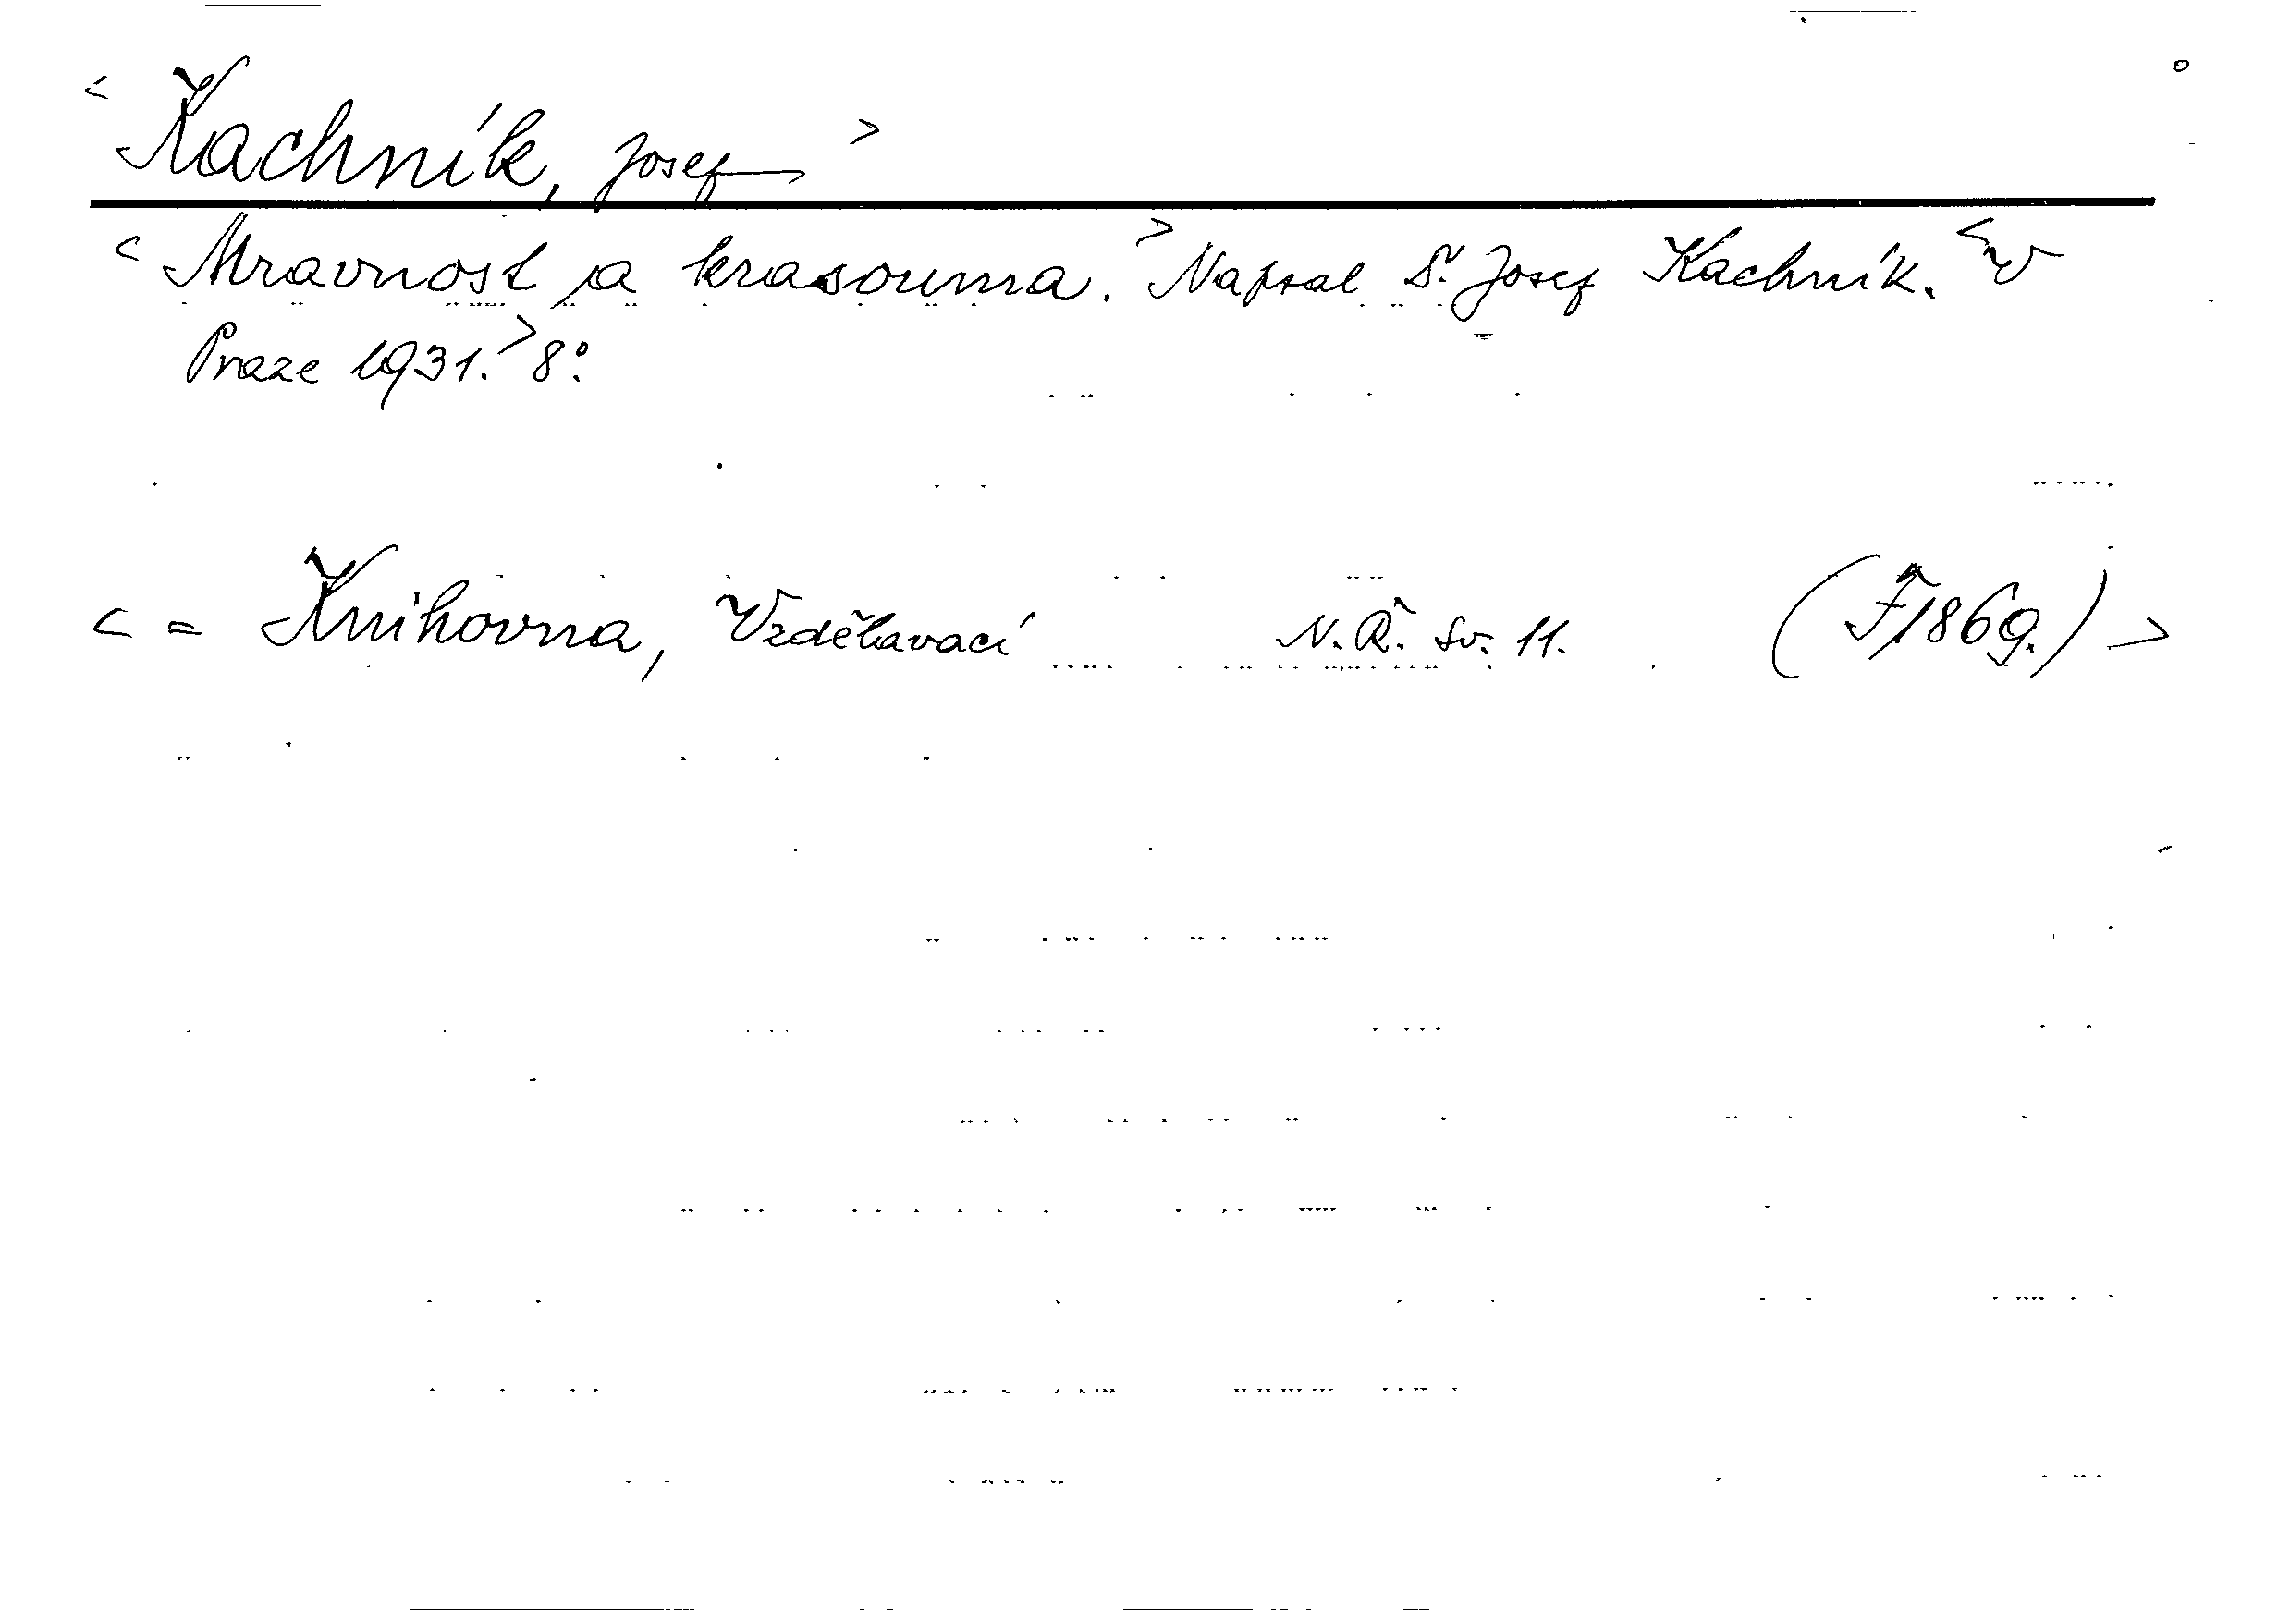 < Kachník, Josef >
< Mravnost a krasouma. > Napsal Dr. Josef Kachník. < V
Praze 1931. > 8°.
< = Knihovna, Vzdělavací N. Ř. Sv. 11. (F 1869.) >